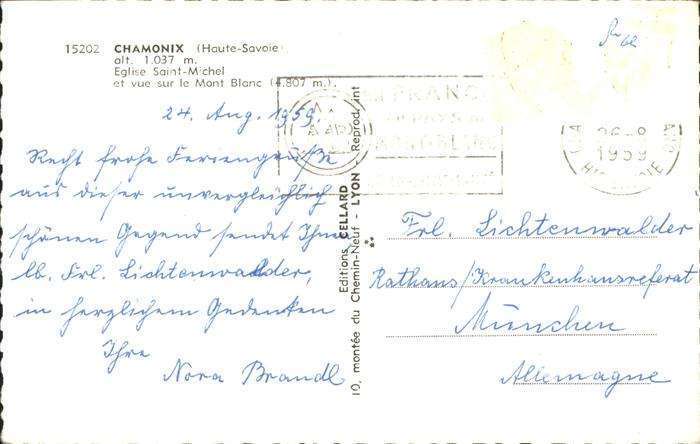 15202 CHAMONIX (Haute-Savoie)
alt. 1.037 m.
Eglise Saint-Michel
et vue sur le Mont Blanc (4.807 m.).
24. Aug. 1959.
Recht frohe Feriengrüße
aus dieser unvergleichlich
schönen Gegend sendet Ihnen
lb. Frl. Lichtenwalder,
in herzlichem Gedenken
Ihre
Nora Brandl
Editions CELLARD
10, montée du Chemin-Neuf - LYON - Reprod. int
**
FRANC
1959
Frl. Lichtenwalder
Rathaus/Krankenhausreferat
München
Allemagne